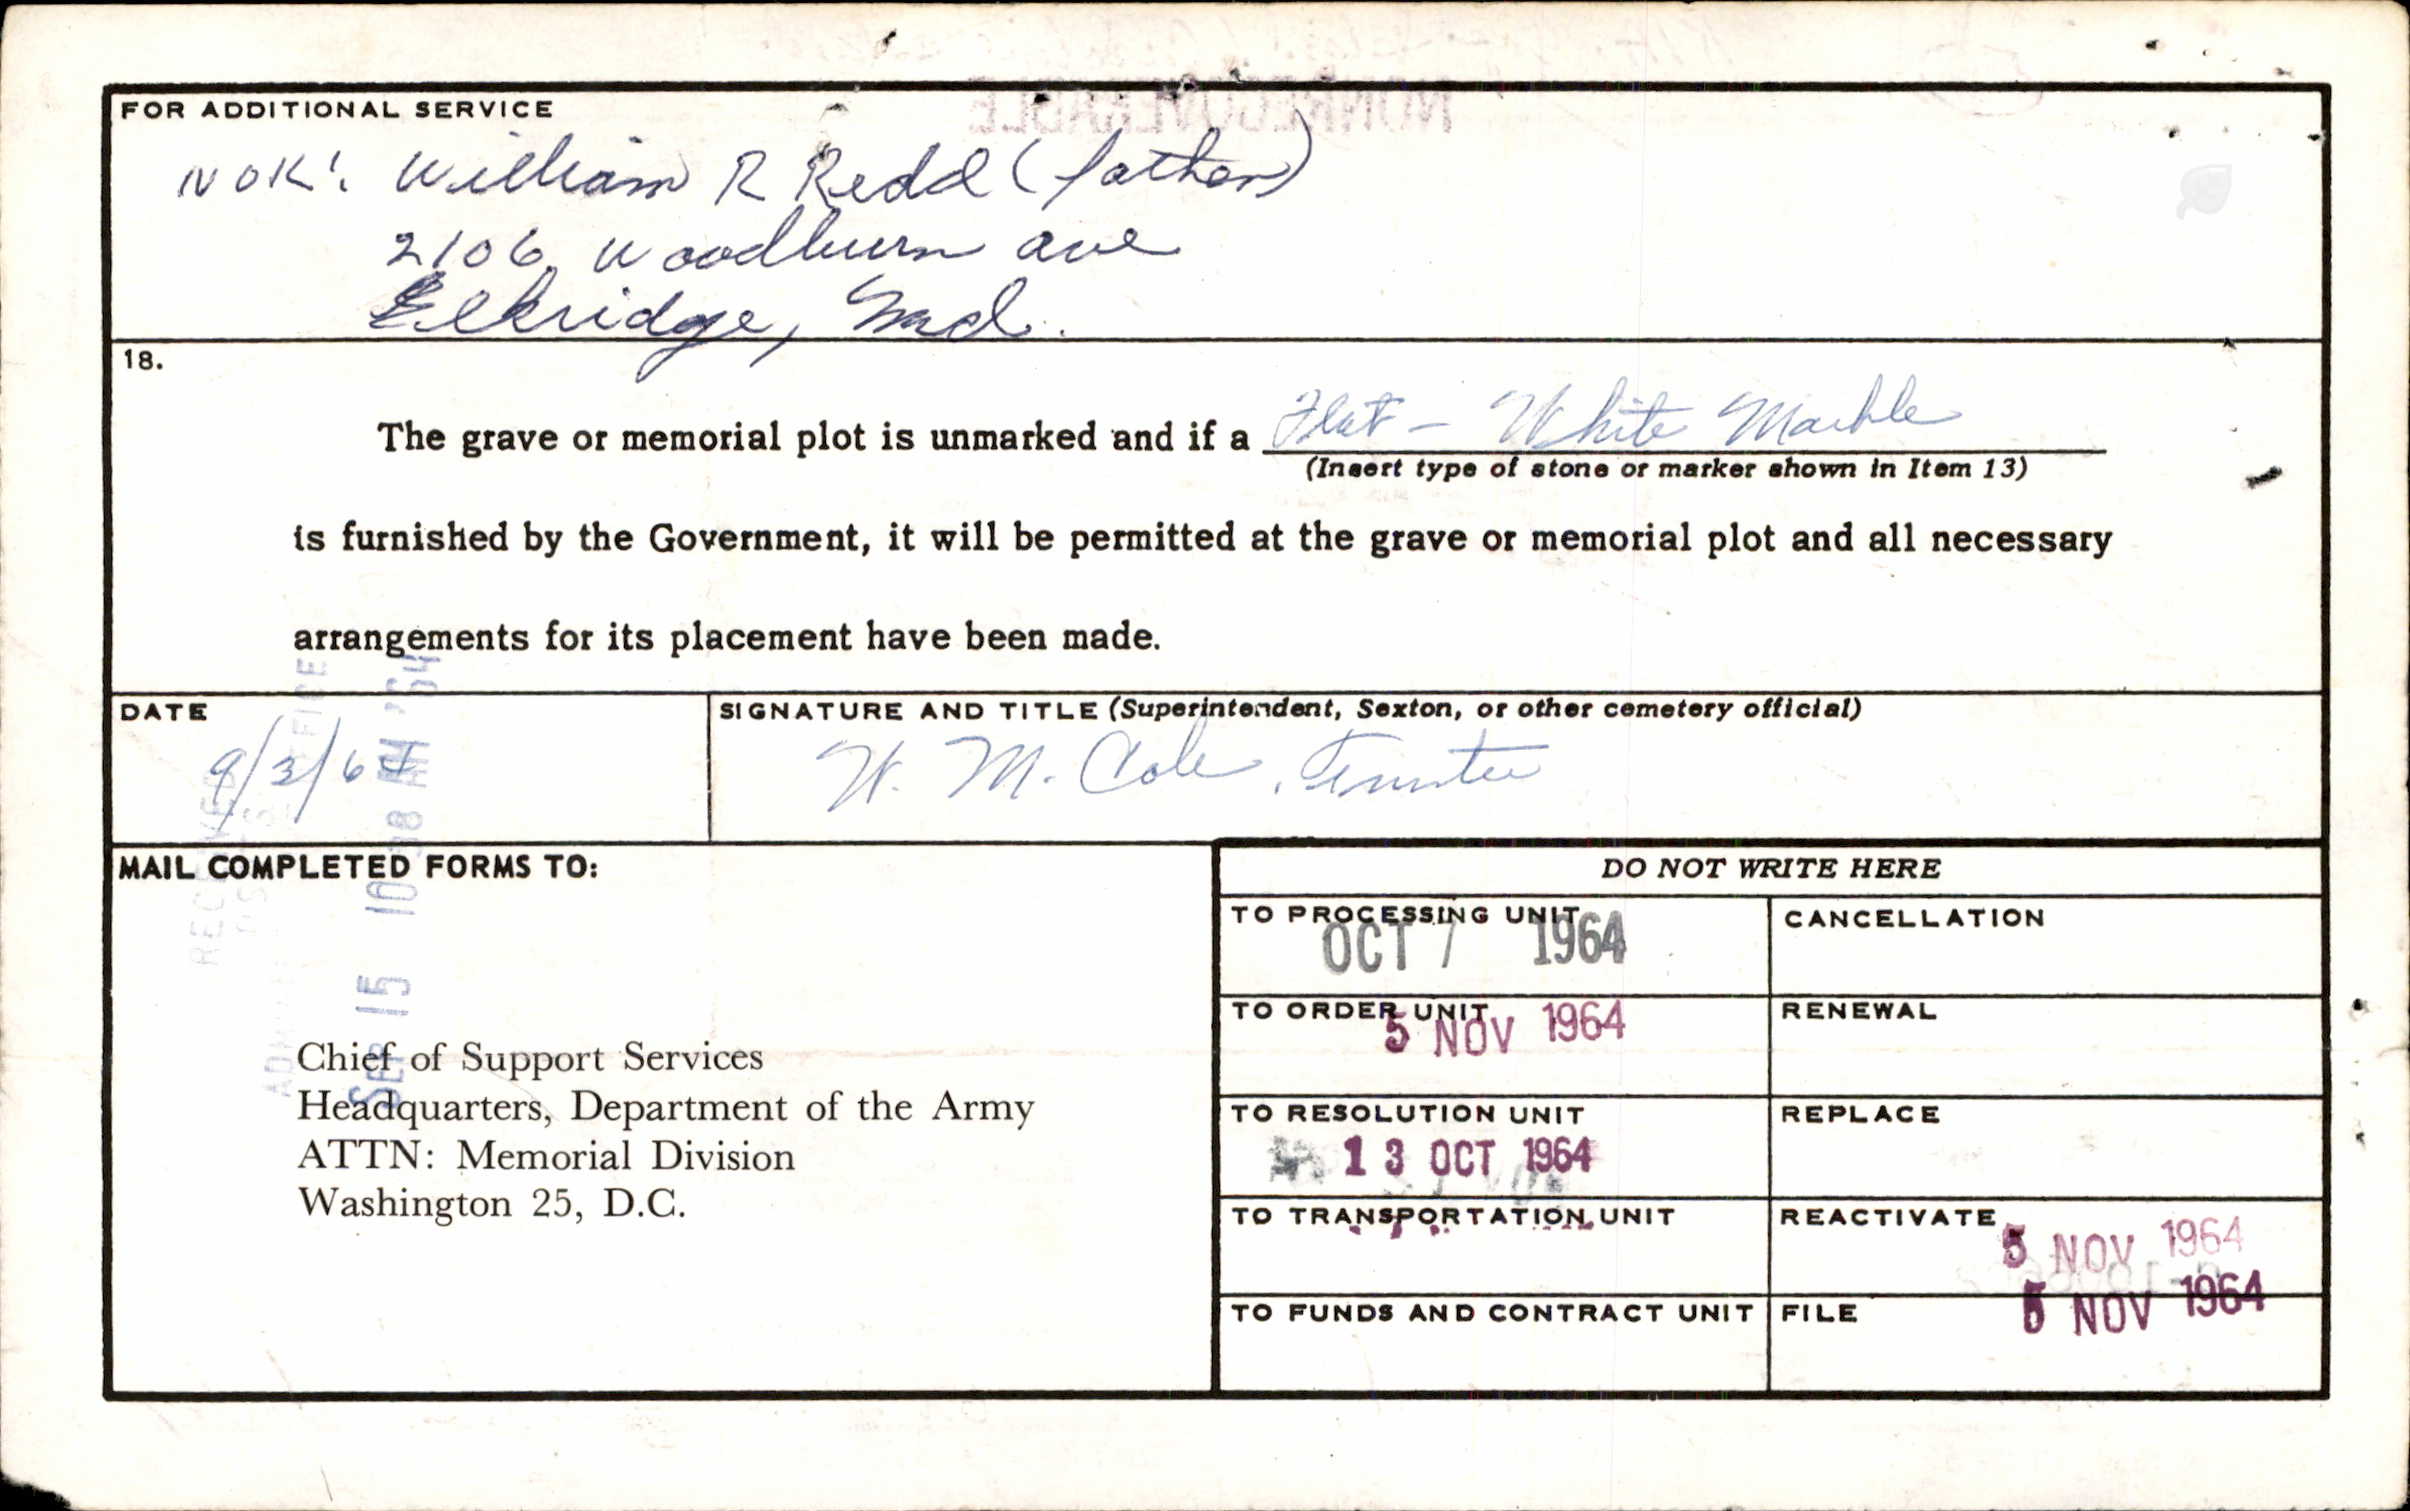 FOR ADDITIONAL SERVICE
NOK: William R Redd (father)
2106 Woodburn ave
Elkridge, Md.
18.
The grave or memorial plot is unmarked and if a Flat - White Marble
(Insert type of stone or marker shown in Item 13)
is furnished by the Government, it will be permitted at the grave or memorial plot and all necessary
arrangements for its placement have been made.
DATE
9/3/64
SIGNATURE AND TITLE (Superintendent, Sexton, or other cemetery official)
W. M. Cole, Trustee
RECEIVED
SEP 15 10 38 AM '64
MAIL COMPLETED FORMS TO:
Chief of Support Services
Headquarters, Department of the Army
ATTN: Memorial Division
Washington 25, D.C.
DO NOT WRITE HERE
TO PROCESSING UNIT
OCT 7 1964
CANCELLATION
TO ORDER UNIT
5 NOV 1964
RENEWAL
TO RESOLUTION UNIT
13 OCT 1964
REPLACE
TO TRANSPORTATION UNIT
REACTIVATE
5 NOV 1964
TO FUNDS AND CONTRACT UNIT
FILE
5 NOV 1964